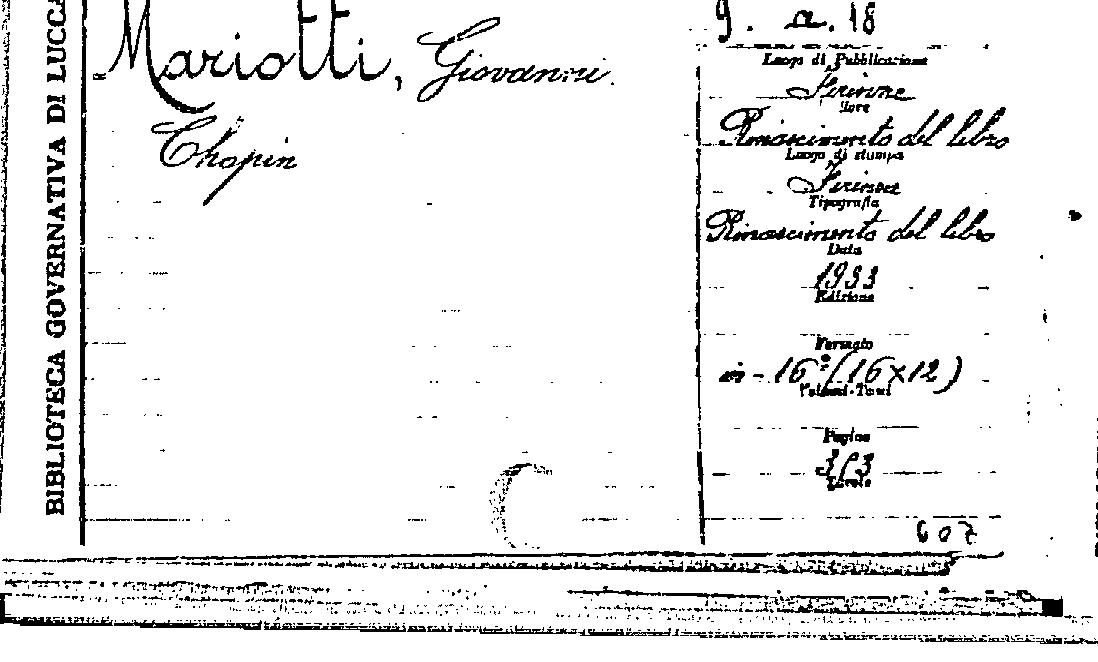 BIBLIOTECA GOVERNATIVA DI LUCCA
Mariotti, Giovanni.
Chopin
9. a. 18
Luogo di Pubblicazione
Firenze
Rinascimento del libro
Luogo di stampa
Firenze
Tipografia
Rinascimento del libro
Data
1933
Edizione
Formato
in-16° (16x12)
Volumi-Tomi
Pagine
Tavole
607